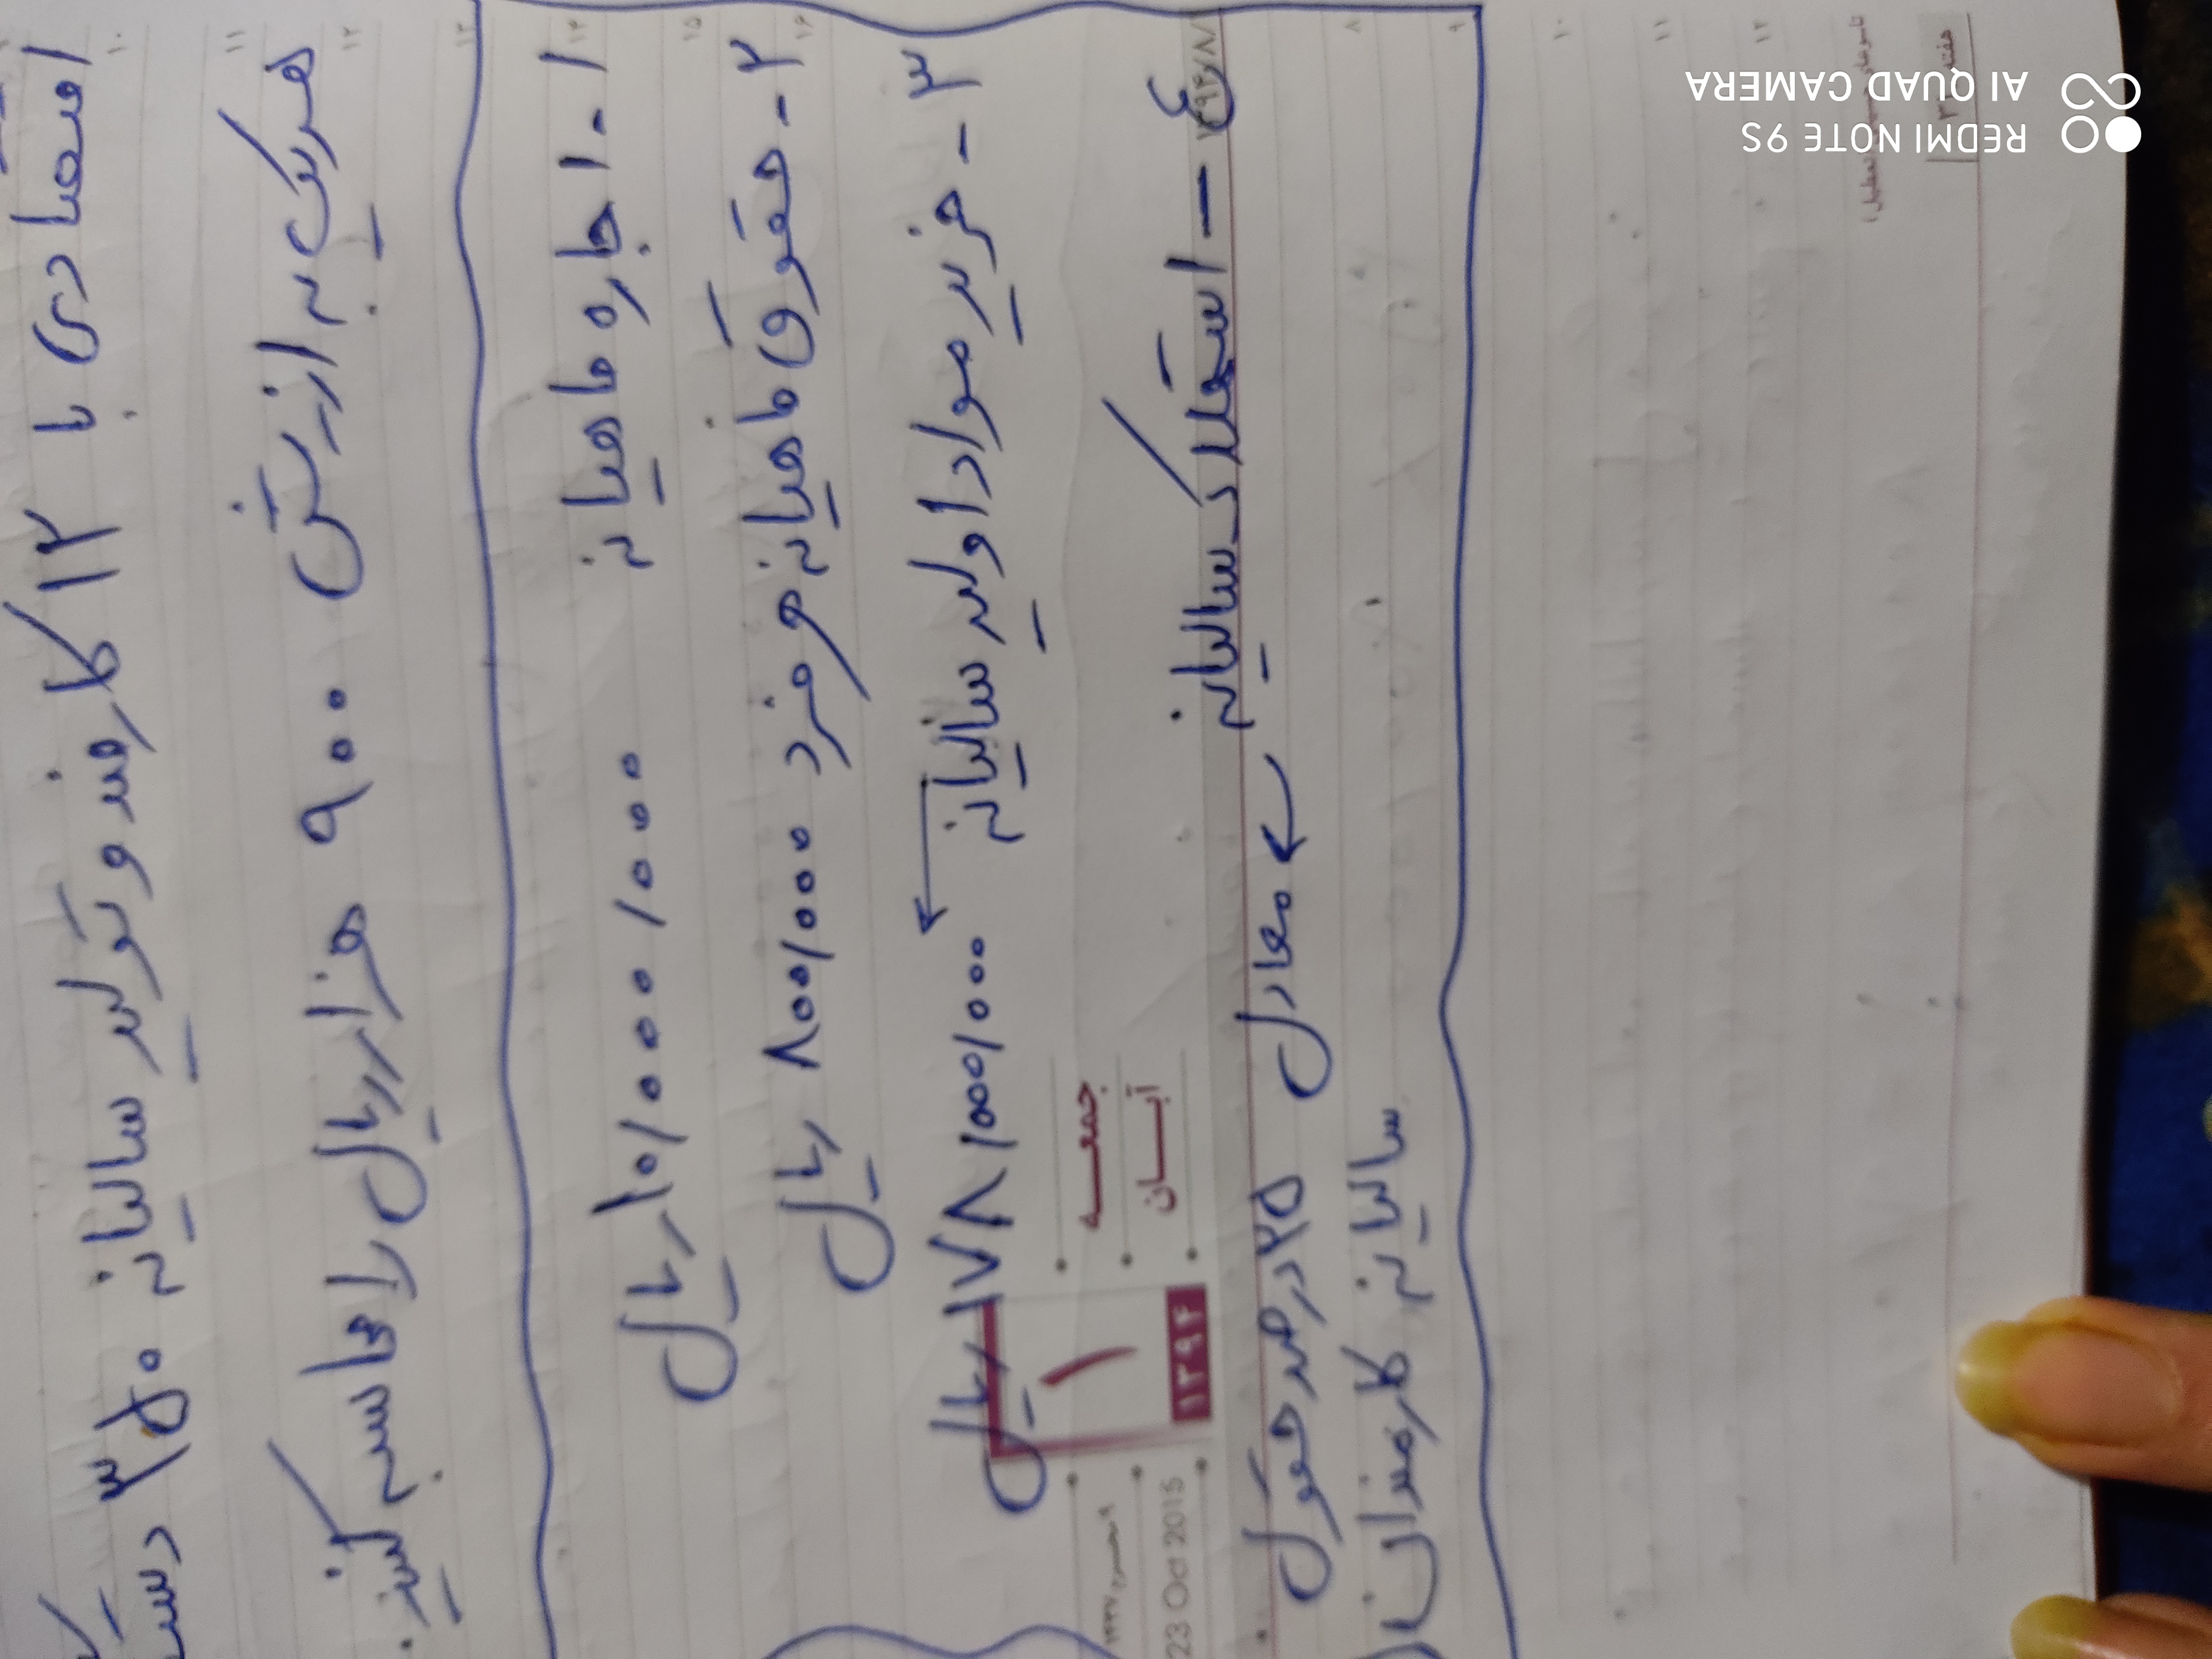 اقتصادی با ۱۲ کارمند و تولید سالیانه ۳۵۰ دستگاه
هریک به ارزش ۹۰۰ هزار ریال را محاسبه کنید.
۱- اجاره ماهیانه ۱۰/۰۰۰/۰۰۰ ریال
۲- حقوق ماهیانه هر فرد ۸۰۰/۰۰۰ ریال
۳- خرید مواد اولیه سالیانه ← ۱۷۸/۵۰۰/۰۰۰ ریال
۴- استهلاک سالیانه ← معادل ۲۵ درصد حقوق
سالیانه کارمندان
جمعه
آبان
۱
۱۳۹۴
23 Oct 2015
REDMI NOTE 9S
AI QUAD CAMERA